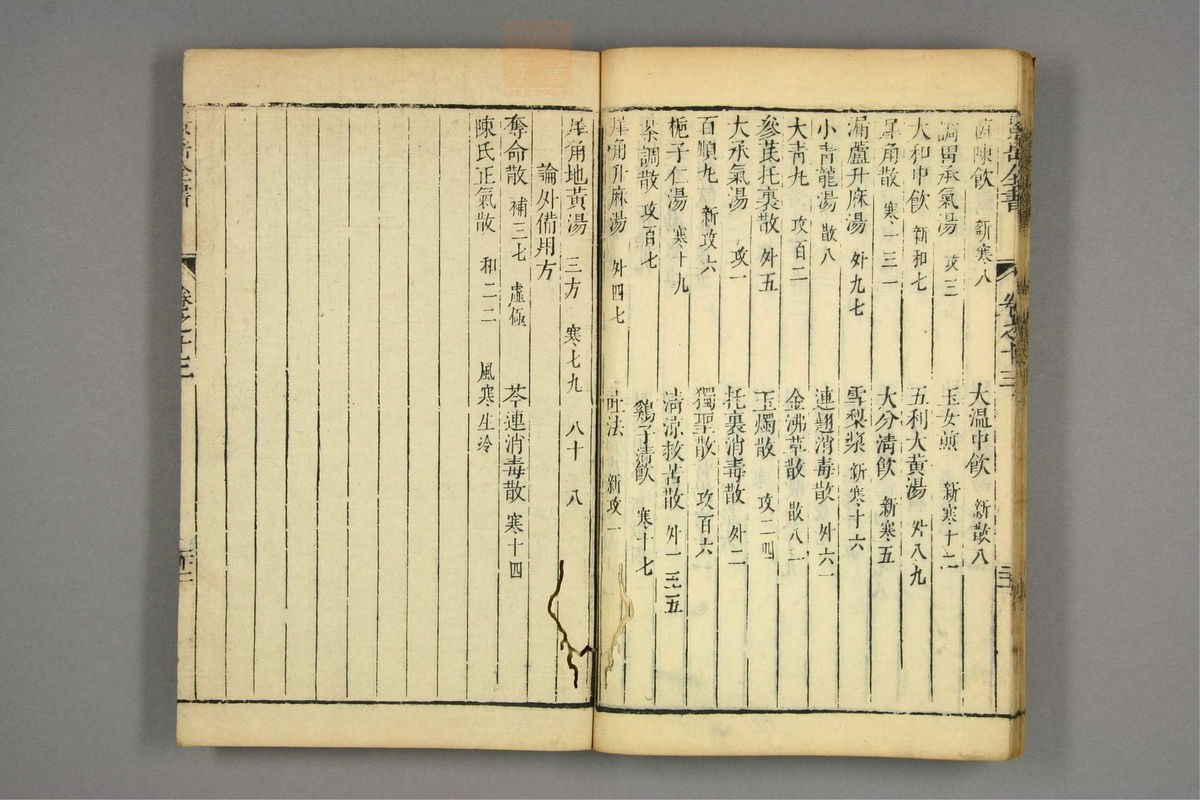 景岳全書 卷之十三
茵陳飲 新寒八 大温中飲 新散八
調胃承氣湯 攻三 玉女煎 新寒十二
大和中飲 新和七 五利大黄湯 外八九
犀角散 寒一三一 大分清飲 新寒五
漏蘆升麻湯 外九七 雪梨漿 新寒十六
小青龍湯 散八 連翹消毒散 外六一
大青丸 攻百二 金沸草散 散八一
參芪托裏散 外五 玉燭散 攻二四
大承氣湯 攻一 托裏消毒散 外二
百順丸 新攻六 獨聖散 攻百六
梔子仁湯 寒十九 清涼救苦散 外一三五
茶調散 攻百七 鷄子清飲 寒十七
犀角升麻湯 外四七 吐法 新攻一
犀角地黄湯 三方 寒七九 八十 八
論外備用方
奪命散 補三七 虛極 芩連消毒散 寒十四
陳氏正氣散 和二二 風寒生冷
景岳全書 卷之十三